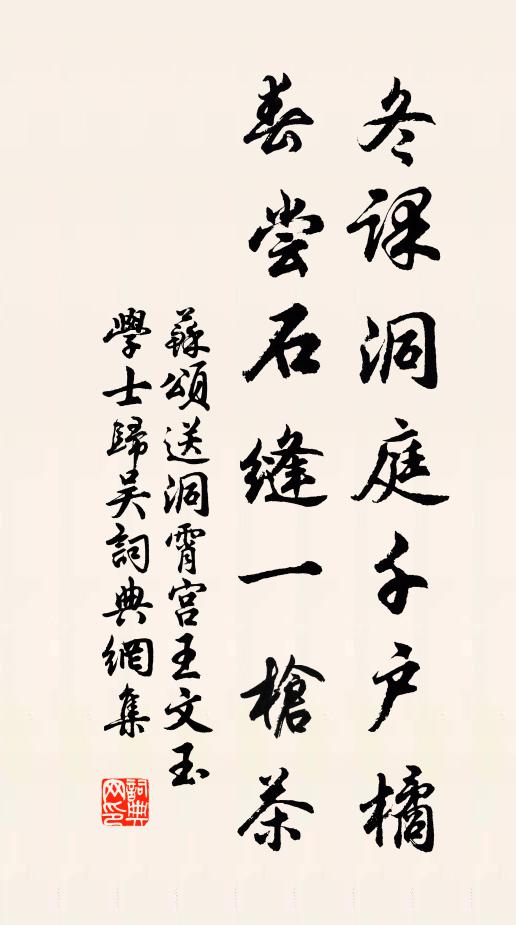 冬課洞庭千户橘
春尝石縫一槍茶
蘇頌送洞霄宫王文玉
學士歸吴詞典網集
詞典网印